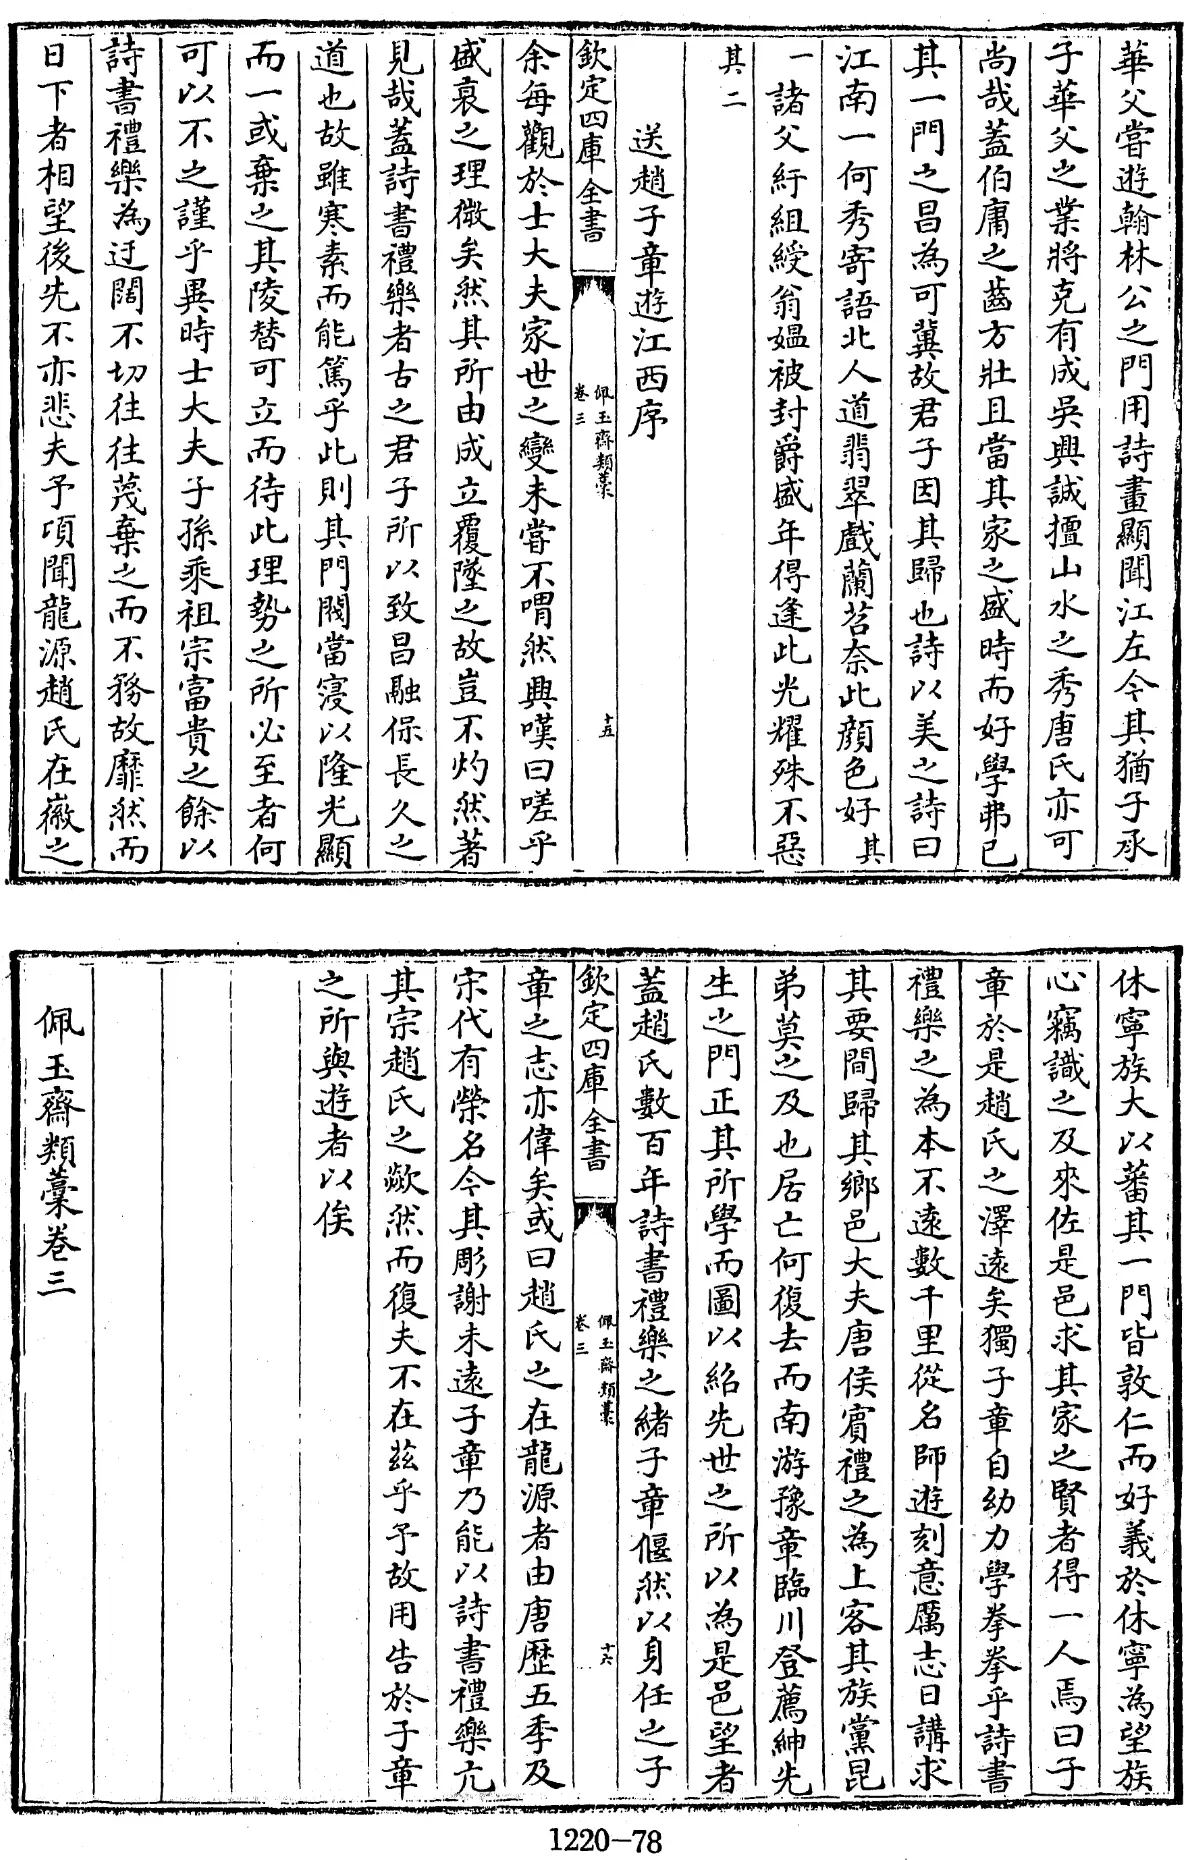 華父嘗遊翰林公之門用詩畫顯聞江左今其猶子承
子華父之業將克有成吳興誠擅山水之秀唐氏亦可
尚哉蓋伯庸之齒方壯且當其家之盛時而好學弗已
其一門之昌為可冀故君子因其歸也詩以美之詩曰
江南一何秀寄語北人道翡翠戲蘭苕奈此顏色好其
一諸父紆組綬翁媼被封爵盛年得逢此光耀殊不惡
其二
送趙子章遊江西序
欽定四庫全書
佩玉齋類藁
卷三
十五
余每觀於士大夫家世之變未嘗不喟然興嘆曰嗟乎
盛衰之理微矣然其所由成立覆墜之故豈不灼然著
見哉蓋詩書禮樂者古之君子所以致昌融保長久之
道也故雖寒素而能篤乎此則其門閥當寖以隆光顯
而一或棄之其陵替可立而待此理勢之所必至者何
可以不之謹乎異時士大夫子孫乘祖宗富貴之餘以
詩書禮樂為迂闊不切往往蔑棄之而不務故靡然而
日下者相望後先不亦悲夫予項聞龍源趙氏在徽之
休寧族大以蕃其一門皆敦仁而好義於休寧為望族
心竊識之及來佐是邑求其家之賢者得一人焉曰子
章於是趙氏之澤遠矣獨子章自幼力學拳拳乎詩書
禮樂之為本不遠數千里從名師遊刻意厲志日講求
其要間歸其鄉邑大夫唐侯賓禮之為上客其族黨昆
弟莫之及也居亡何復去而南游豫章臨川登薦紳先
生之門正其所學而圖以紹先世之所以為是邑望者
蓋趙氏數百年詩書禮樂之緒子章偃然以身任之子
欽定四庫全書
佩玉齋類藁
卷三
十六
章之志亦偉矣或曰趙氏之在龍源者由唐歷五季及
宋代有榮名今其彫謝未遠子章乃能以詩書禮樂亢
其宗趙氏之歘然而復夫不在茲乎予故用告於子章
之所與遊者以俟
佩玉齋類藁卷三
1220-78